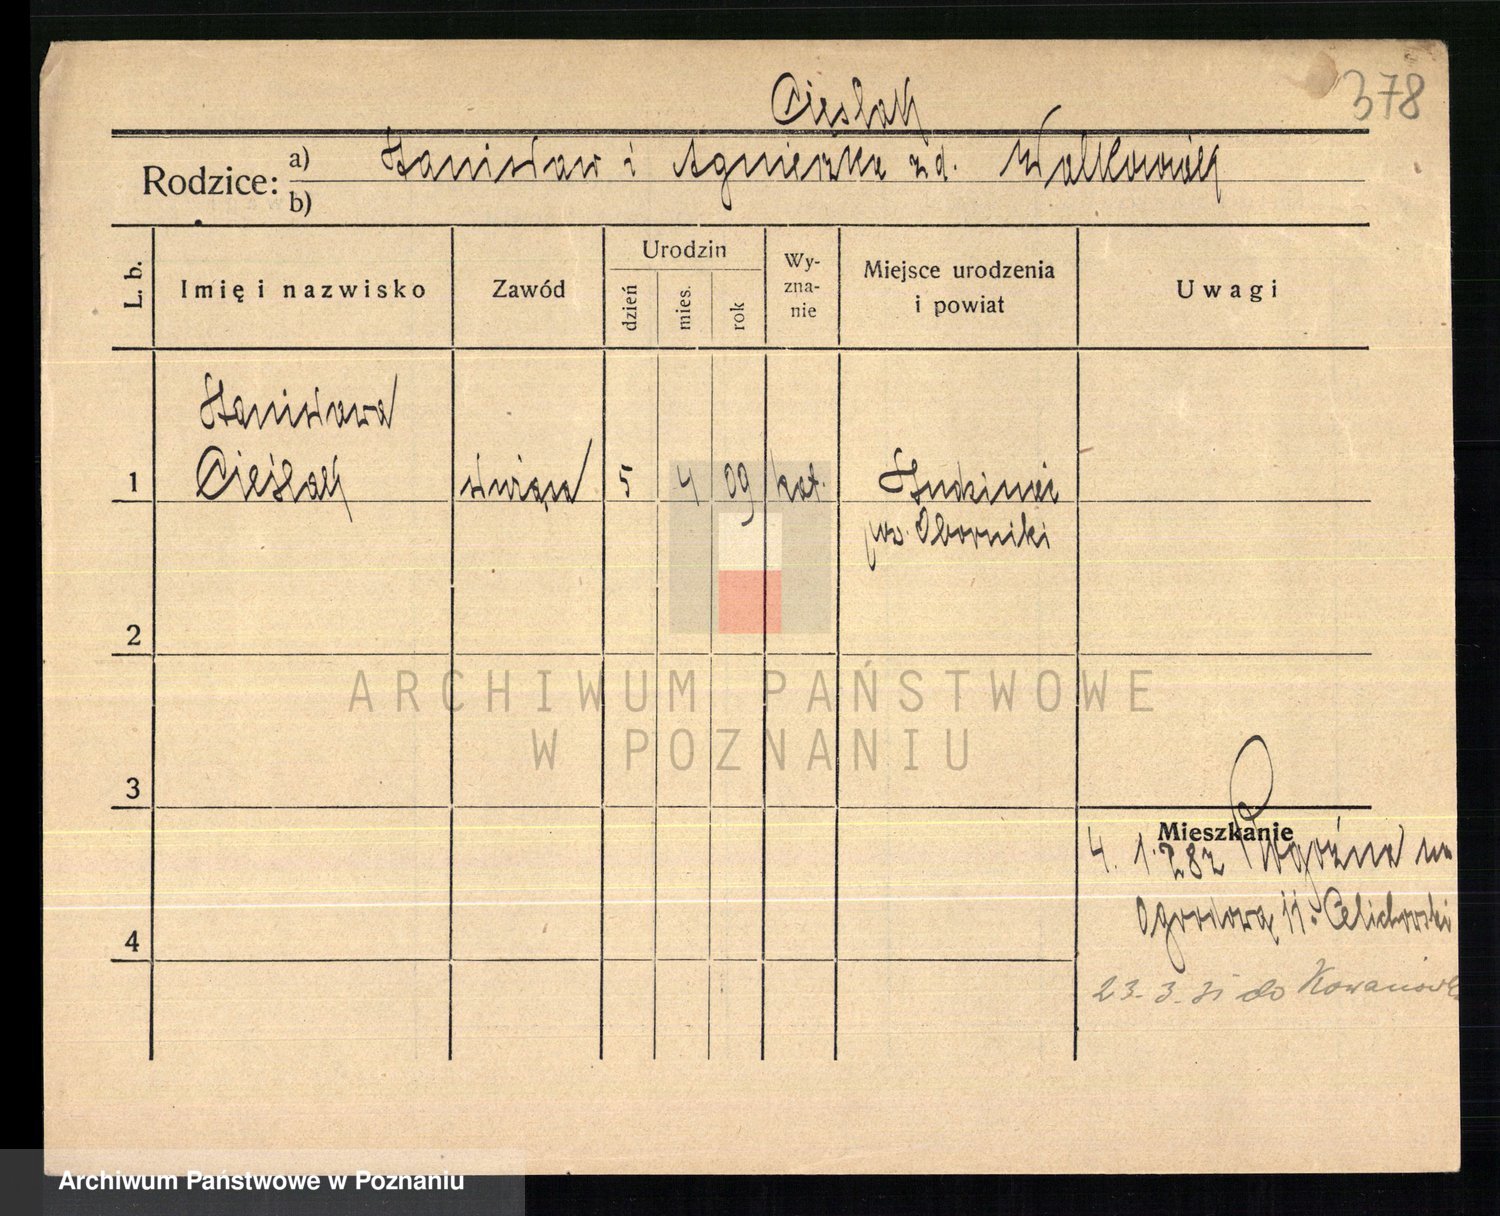 378
Cieślak
Rodzice: a) Stanisław i Agnieszka zd. Walkowiak
b)
L. b.
Imię i nazwisko
Zawód
Urodzin
dzień
mies.
rok
Wy-
zna-
nie
Miejsce urodzenia
i powiat
Uwagi
Stanisława
1 Cieślak służąca 5 4 09 kat. Studzieniec
pow. Oborniki
2
ARCHIWUM PAŃSTWOWE
W POZNANIU
3
Mieszkanie
4. 1. Rogoźna
Ogrodowa 11. Celichowski
4
23. 3. 31 do Kowanówka
Archiwum Państwowe w Poznaniu